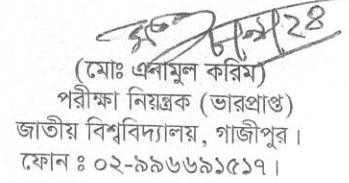 (মোঃ এনামুল করিম)
পরীক্ষা নিয়ন্ত্রক (ভারপ্রাপ্ত)
জাতীয় বিশ্ববিদ্যালয়, গাজীপুর।
ফোন ঃ ০২-৯৯৬৬৯১৫১৭।